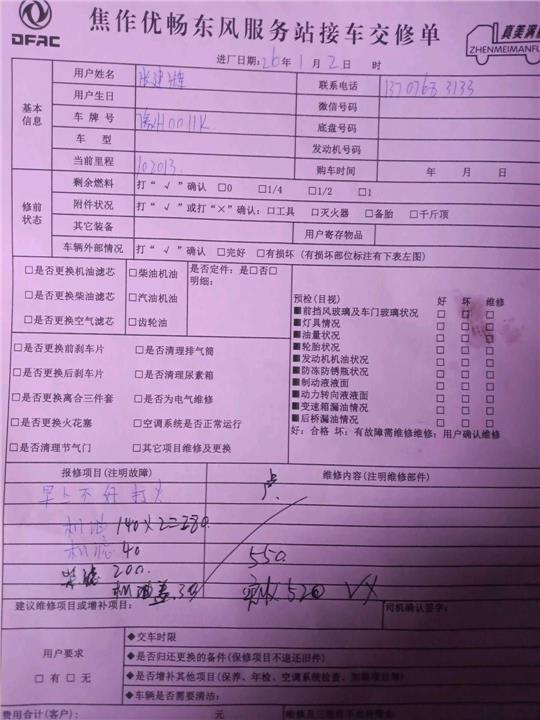 DFAC
焦作优畅东风服务站接车交修单
真美满
ZHENMEIMANFU
进厂日期:26年1月2日 时
基本信息
用户姓名
联系电话
用户生日
微信号码
车牌号 豫H0011K
底盘号码
车 型
发动机号码
当前里程 102013
购车时间 年 月 日
修前状态
剩余燃料 打“√”确认 □0 □1/4 □1/2 □1
附件状况 打“√”或打“×”确认:□工具 □灭火器 □备胎 □千斤顶
其它装备
用户寄存物品
车辆外部情况 打“√”确认 □完好 □有损坏(有损坏部位标注有下表左图)
□是否更换机油滤芯 □柴油机油 是否定件:是□否□
明细:
□是否更换柴油滤芯 □汽油机油
□是否更换空气滤芯 □齿轮油
预检(目视) 好 坏 维修
■前挡风玻璃及车门玻璃状况 □ □ □
■灯具情况 □ □ □
■油量状况 □ □ □
■轮胎状况 □ □ □
■发动机机油状况 □ □ □
■防冻防锈瓶状况 □ □ □
■制动液液面 □ □ □
■动力转向液液面 □ □ □
■变速箱漏油情况 □ □ □
■后桥漏油情况 □ □ □
好:合格 坏:有故障需维修维修:用户确认维修
□是否更换前刹车片 □是否清理排气筒
□是否更换后刹车片 □是否清理尿素箱
□是否更换离合三件套 □是否为电气维修
□是否更换火花塞 □空调系统是否正常运行
□是否清理节气门 □其它项目维修及更换
报修项目(注明故障) 维修内容(注明维修部件)
早上不好打火
机油 140×2=280
机滤 40
550
柴滤 200
机油盖 30
实收520
建议维修项目或增补项目:
司机确认签字:
用户要求
□有 □无
◆交车时限
◆是否归还更换的备件(保修项目不退还旧件)
◆是否增补其他项目(保养、年检、空调系统检查、
◆车辆是否需要清洁:
费用合计(客户): 元